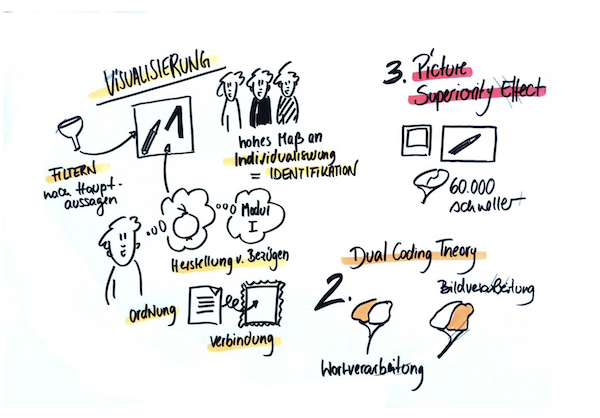 VISUALISIERUNG
FILTERN
nach Haupt-
aussagen
hohes Maß an
Individualisierung
= IDENTIFIKATION
Modul
I
Herstellung v. Bezügen
ORDNUNG
Verbindung
3. Picture
Superiority Effect
60.000
schneller
Dual Coding Theory
2.
Bildverarbeitung
Wortverarbeitung